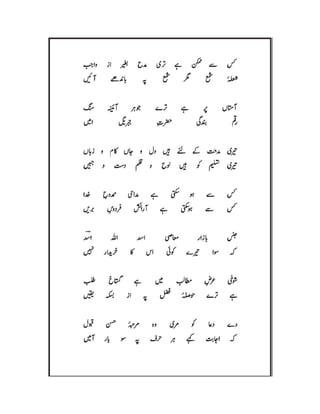 کس سے ممکن ہے تری مدح بغیر از واجب
شعلۂ شمع مگر شمع پہ باندھے آئیں
آستاں پر ہے ترے جوہرِ آئینۂ سنگ
رقمِ بندگیِ حضرتِ جبریلِ امیں
تیری مدحت کے لئے ہیں دل و جاں کام و زباں
تیری تسلیم کو ہیں لوح و قلم دست و جبیں
کس سے ہو سکتی ہے مداحیِ ممدوحِ خدا
کس سے ہو سکتی ہے آرائشِ فردوسِ بریں
جنسِ بازارِ معاصی اسد اللہ اسدؔ
کہ سوا تیرے کوئی اس کا خریدار نہیں
شوخیِ عرضِ مطالب میں ہے گستاخِ طلب
ہے ترے حوصلۂ فضل پہ از بسکہ یقیں
دے دعا کو مری وہ مرتبۂ حسنِ قبول
کہ اجابت کہے ہر حرف پہ سو بار آمیں